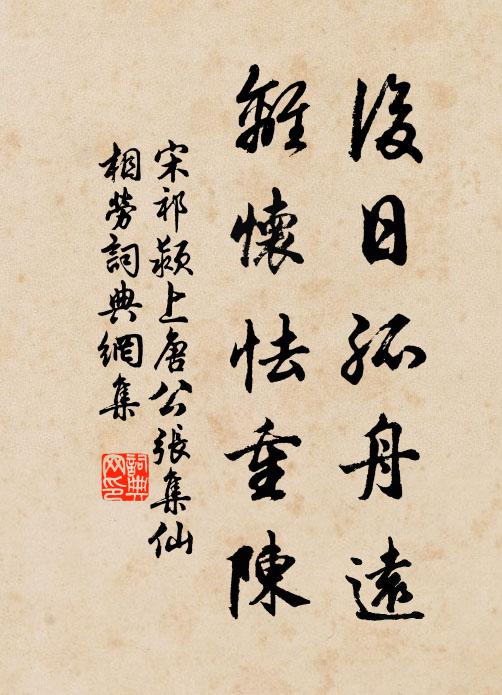 後日孤舟遠
離懷怯重陳
宋祁潁上唐公張集仙
相勞詞典網集
詞典網印